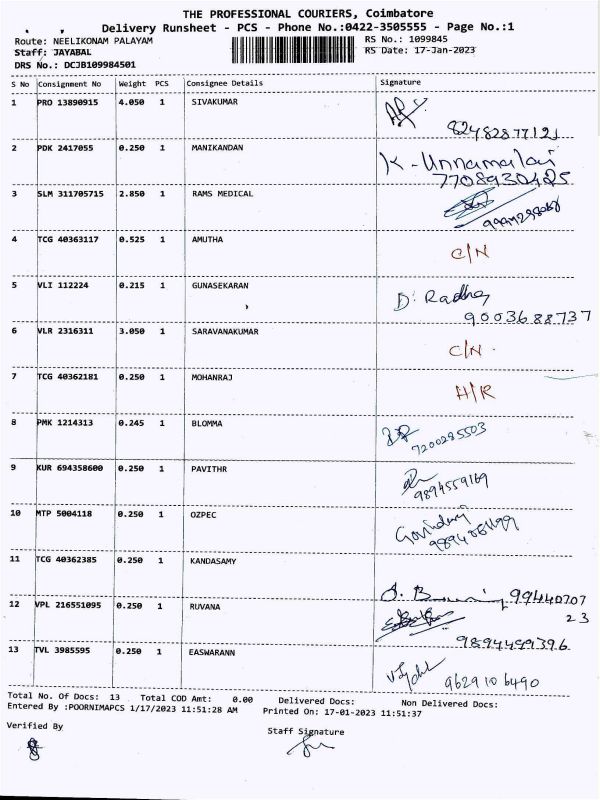 THE PROFESSIONAL COURIERS, Coimbatore
Delivery Runsheet - PCS - Phone No.:0422-3505555 - Page No.:1
Route: NEELIKONAM PALAYAM
RS No.: 1099845
Staff: JAYABAL
RS Date: 17-Jan-2023
DRS No.: DCJB109984501
S No Consignment No Weight PCS Consignee Details Signature
1 PRO 13890915 4.050 1 SIVAKUMAR
82482877121
2 PDK 2417055 0.250 1 MANIKANDAN K - Unnamalai
7708930425
3 SLM 311705715 2.850 1 RAMS MEDICAL
4 TCG 40363117 0.525 1 AMUTHA C/N
5 VLI 112224 0.215 1 GUNASEKARAN D. Radha
9003688737
6 VLR 2316311 3.050 1 SARAVANAKUMAR C/N
7 TCG 40362181 0.250 1 MOHANRAJ H/R
8 PMK 1214313 0.245 1 BLOMMA
7200285503
9 KUR 694358600 0.250 1 PAVITHR
9894559169
10 MTP 5004118 0.250 1 OZPEC
11 TCG 40362385 0.250 1 KANDASAMY
99440707
23
12 VPL 216551095 0.250 1 RUVANA
9894499396
13 TVL 3985595 0.250 1 EASWARANN
9629106490
Total No. Of Docs: 13 Total COD Amt: 0.00 Delivered Docs: Non Delivered Docs:
Entered By :POORNIMAPCS 1/17/2023 11:51:28 AM Printed On: 17-01-2023 11:51:37
Verified By
Staff Signature